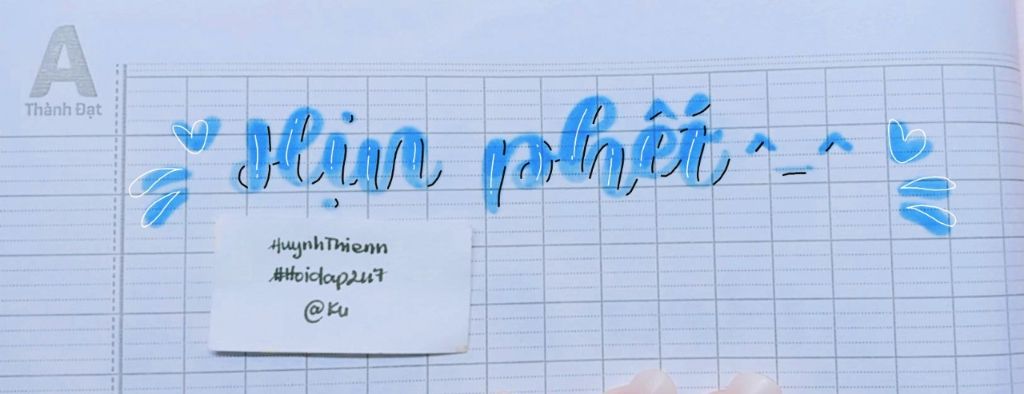 A
Thành Đạt
Hịn phết ^_^
HuynhThienn
#Hoidap247
@Ku